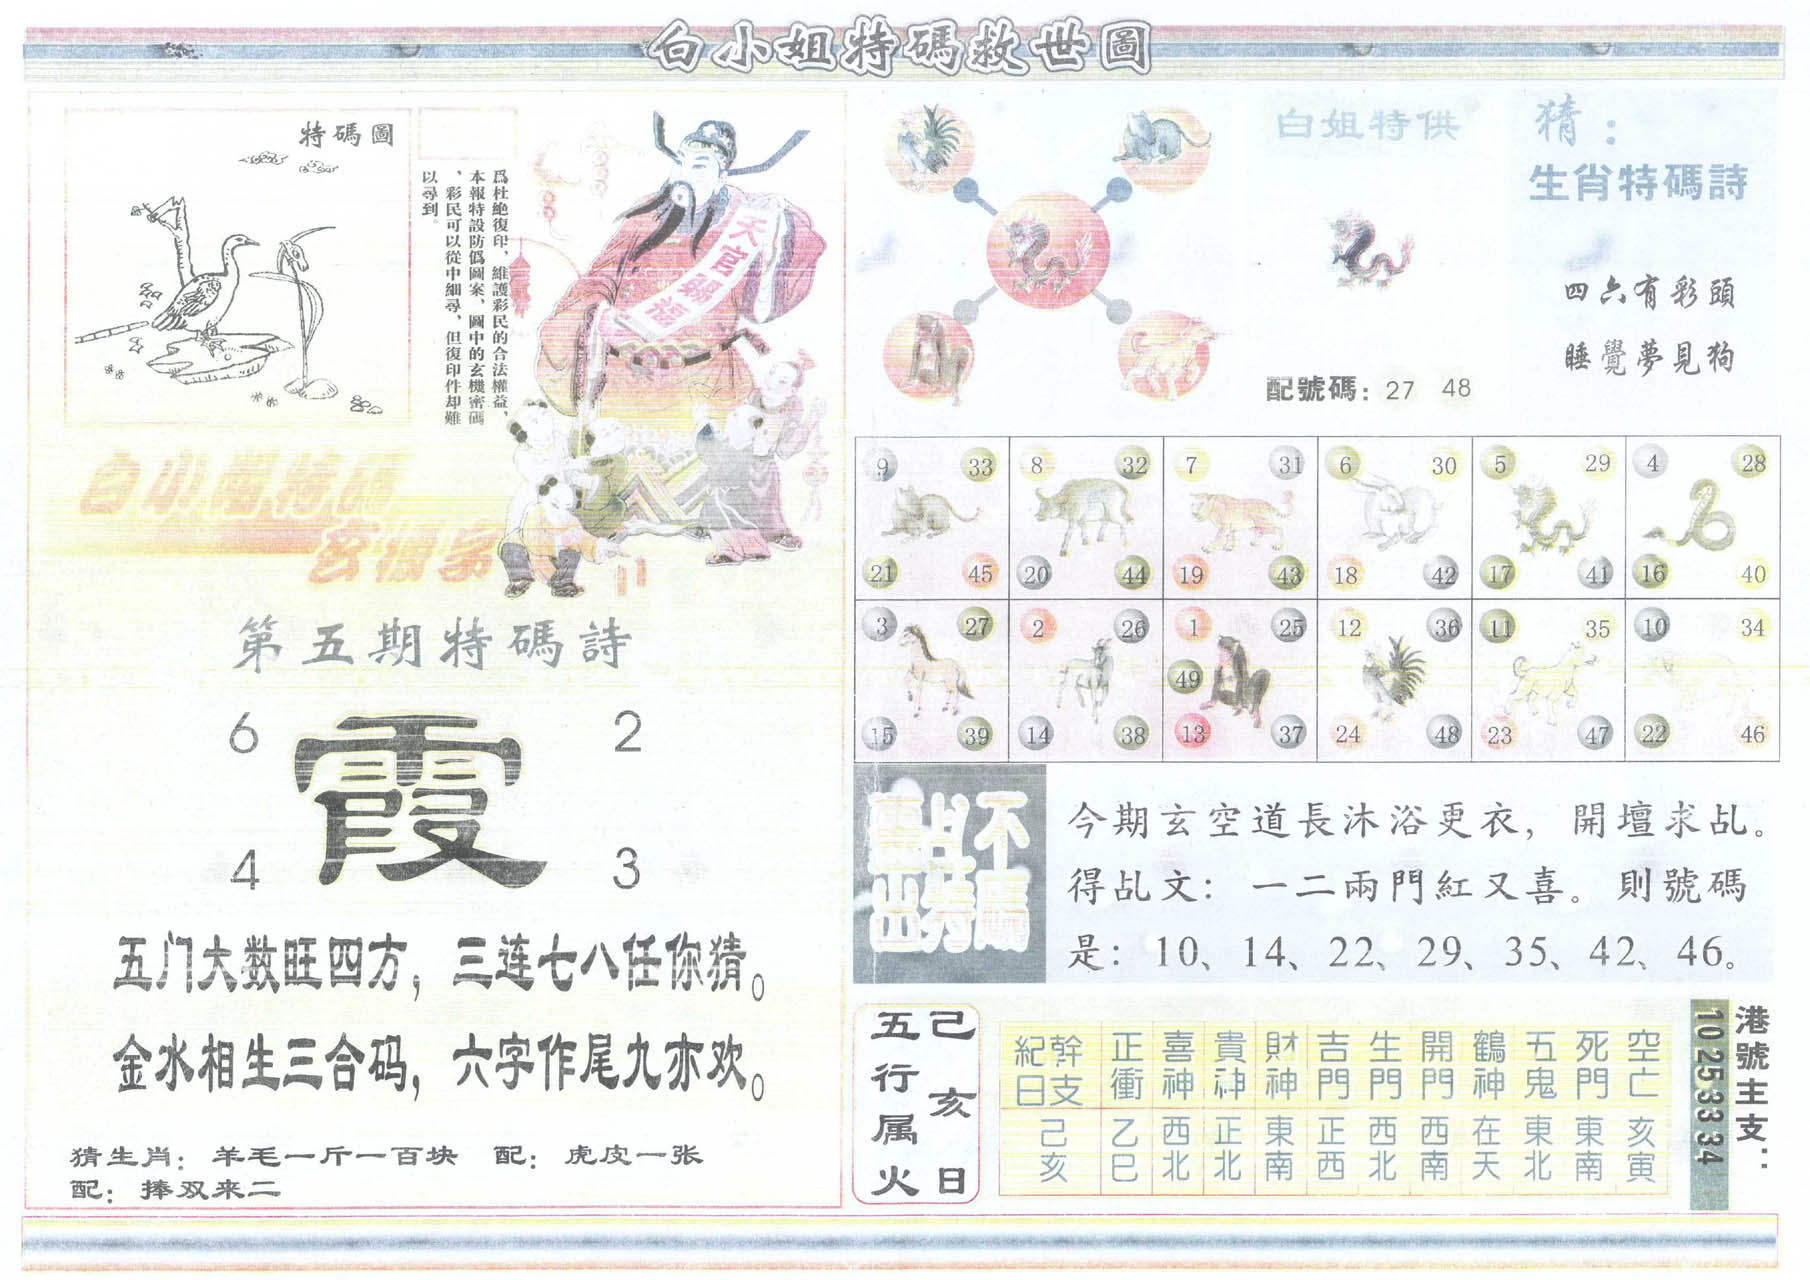 白小姐特碼救世圖
特碼圖
爲杜絶復印、維護彩民的合法權益，
本報特設防僞圖案，圖中的玄機密碼
，彩民可以從中細尋，但復印件却難
以尋到。
天官賜福
白小姐特碼
玄機字
第五期特碼詩
6 2
霞
4 3
五门大数旺四方，三连七八任你猜。
金水相生三合码，六字作尾九亦欢。
猜生肖：羊毛一斤一百块 配：虎皮一张
配：捧双来二
白姐特供
配號碼：27 48
猜：
生肖特碼詩
四六有彩頭
睡覺夢見狗
9 33 8 32 7 31 6 30 5 29 4 28
21 45 20 44 19 43 18 42 17 41 16 40
3 27 2 26 1 25 12 36 11 35 10 34
49
15 39 14 38 13 37 24 48 23 47 22 46
不
占特碼
重出
今期玄空道長沐浴更衣，開壇求乩。
得乩文：一二兩門紅又喜。則號碼
是：10、14、22、29、35、42、46。
己亥日
五行属火
紀日 幹支 正衝 喜神 貴神 財神 吉門 生門 開門 鶴神 五鬼 死門 空亡
己亥 乙巳 西北 正北 東南 正西 西北 西南 在天 東北 東南 亥寅
港號主支：
10 25 33 34